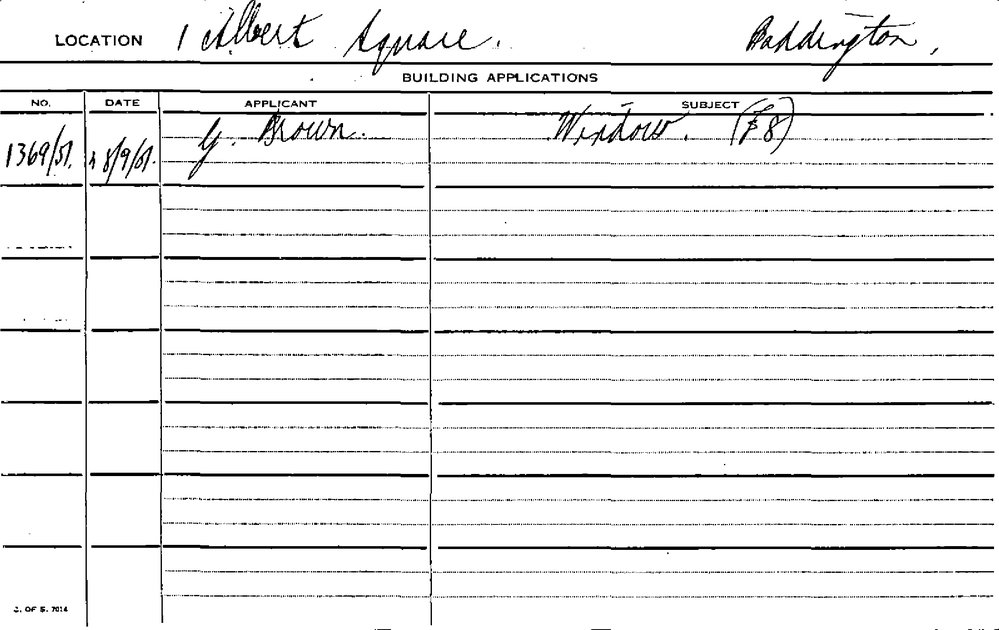 LOCATION 1 Albert Square. Paddington,
BUILDING APPLICATIONS
NO. DATE APPLICANT SUBJECT
G. Brown. Window. (£8)
1369/51. 8/9/61.
C. OF S. 7014